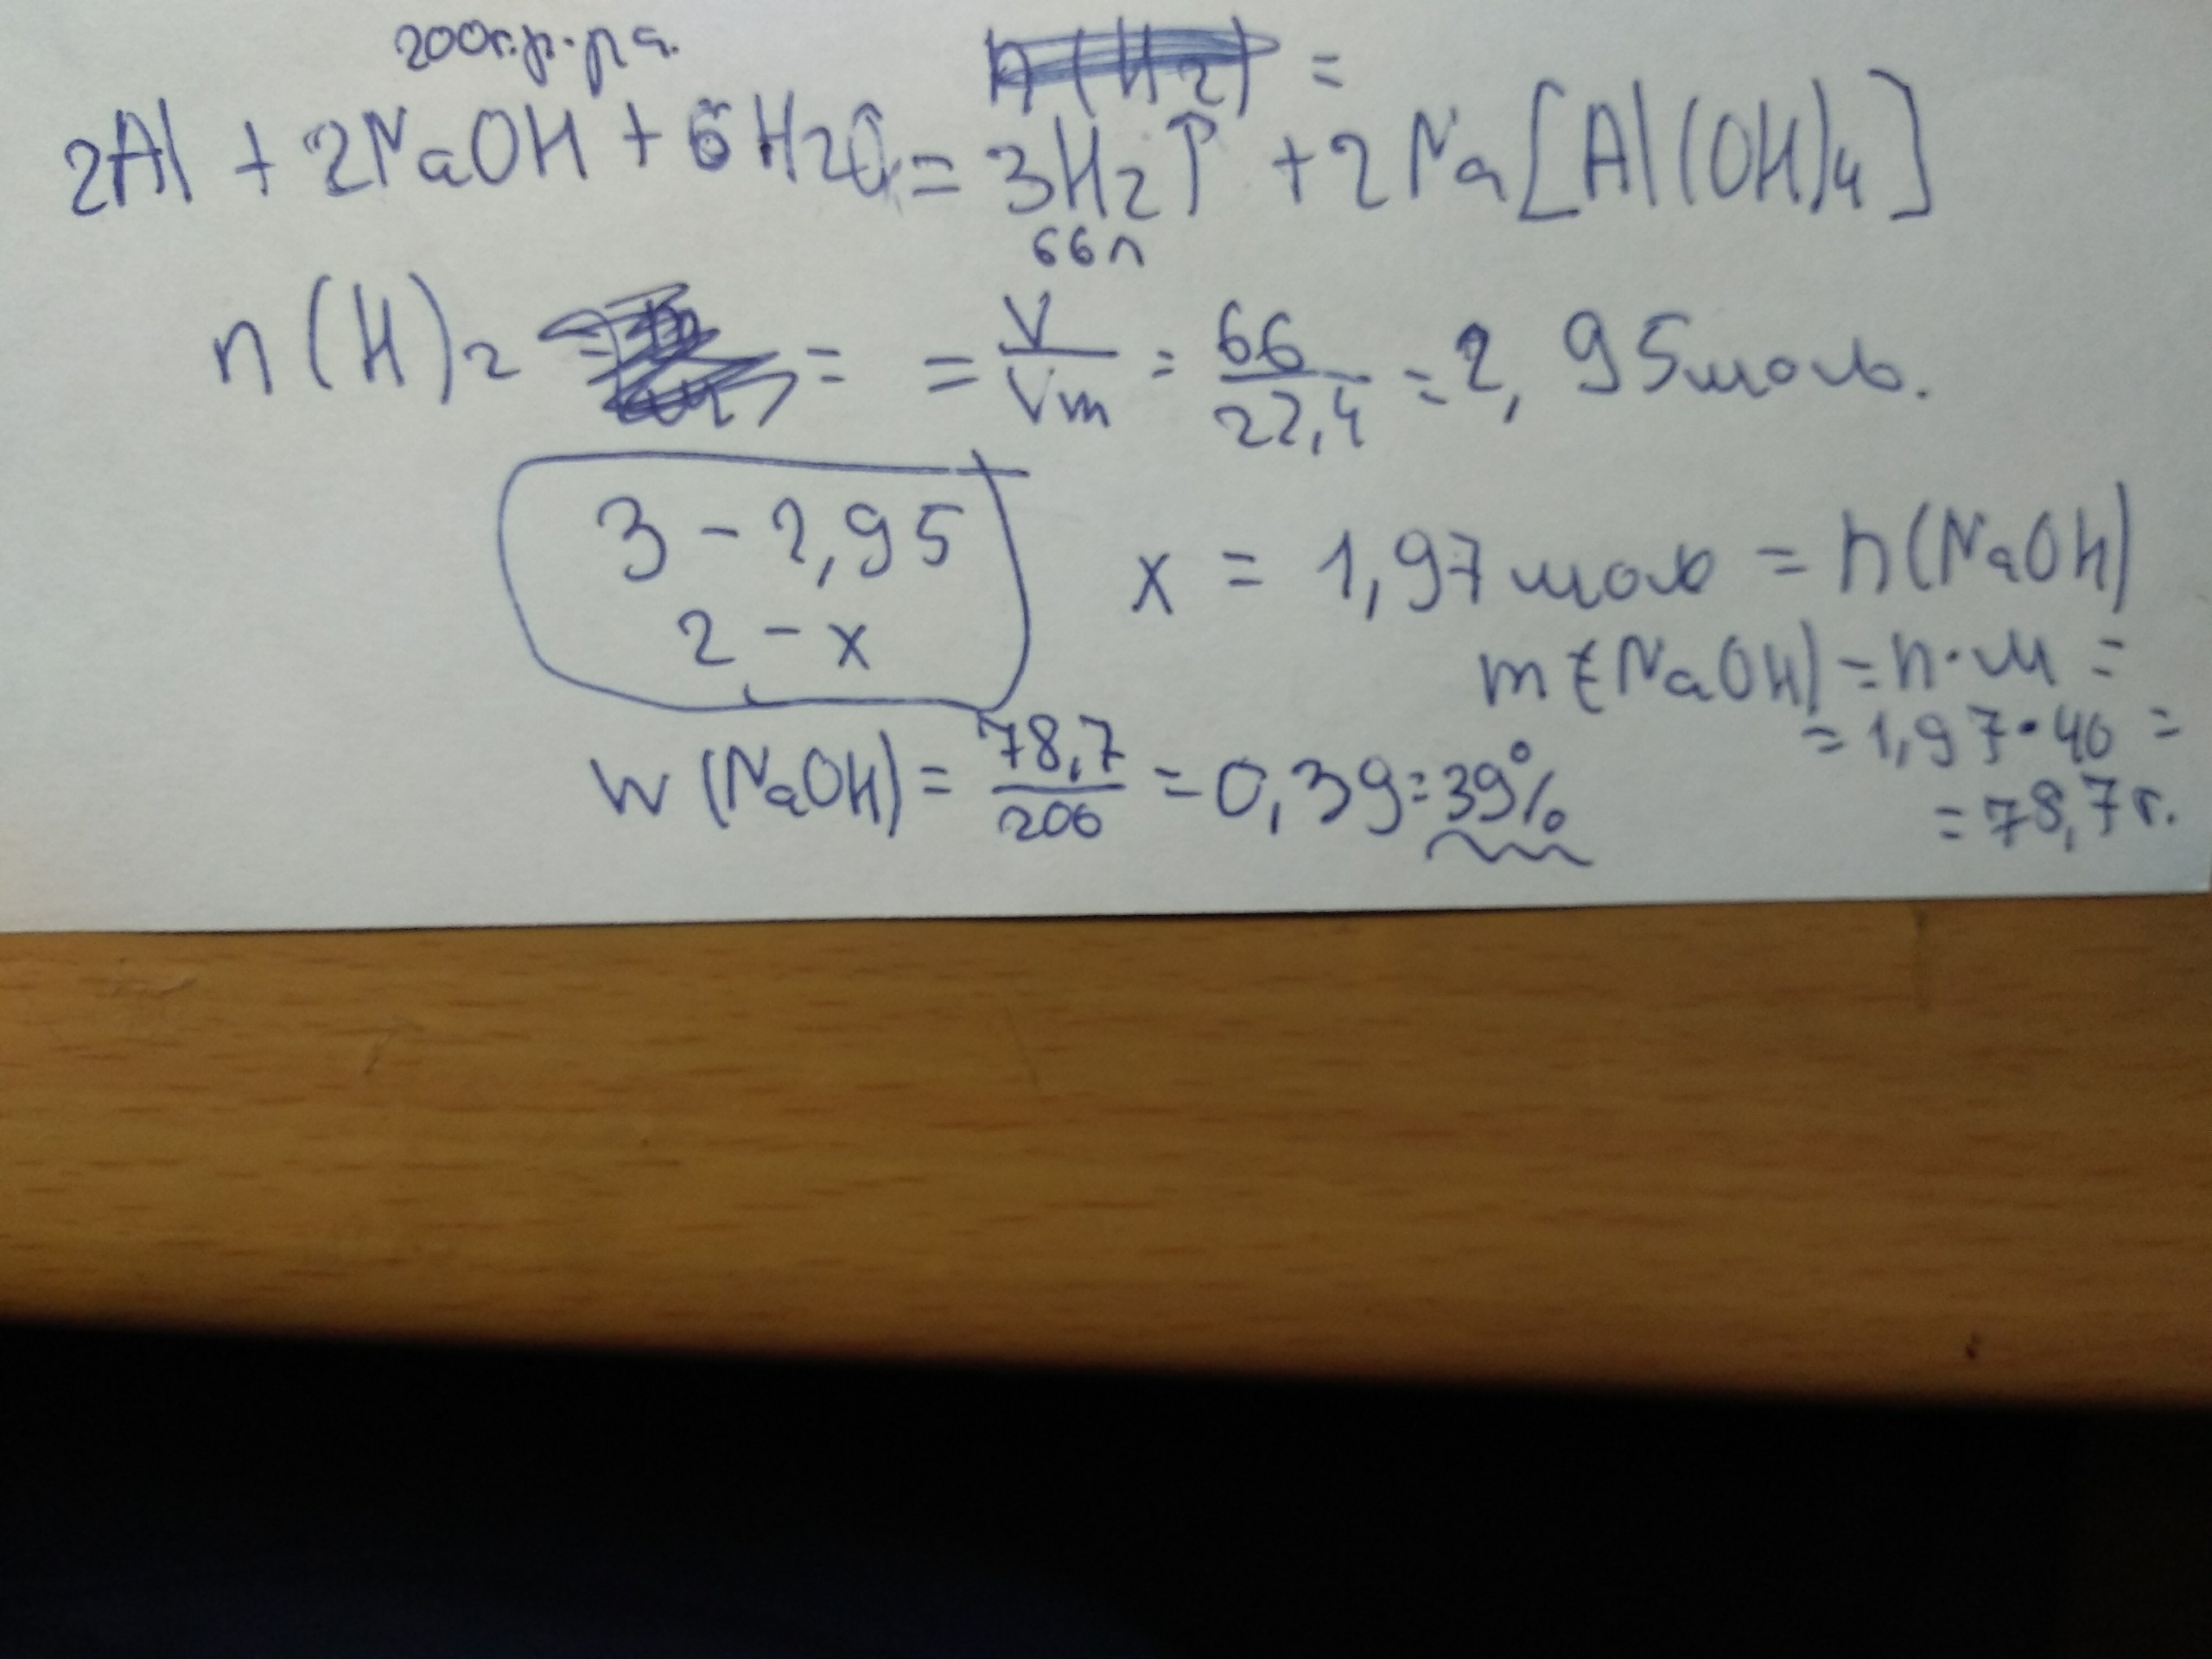 200г.р-ра.
n(H2) =
2Al + 2NaOH + 6H2O = 3H2↑ + 2Na[Al(OH)4]
66л
n(H)2 = = V/Vm = 66/22,4 = 2,95моль.
3 - 2,95
2 - x
x = 1,97моль = n(NaOh)
m(NaOH) = n·м =
= 1,97·40 =
= 78,7г.
w(NaOH) = 78,7/200 = 0,39 = 39%